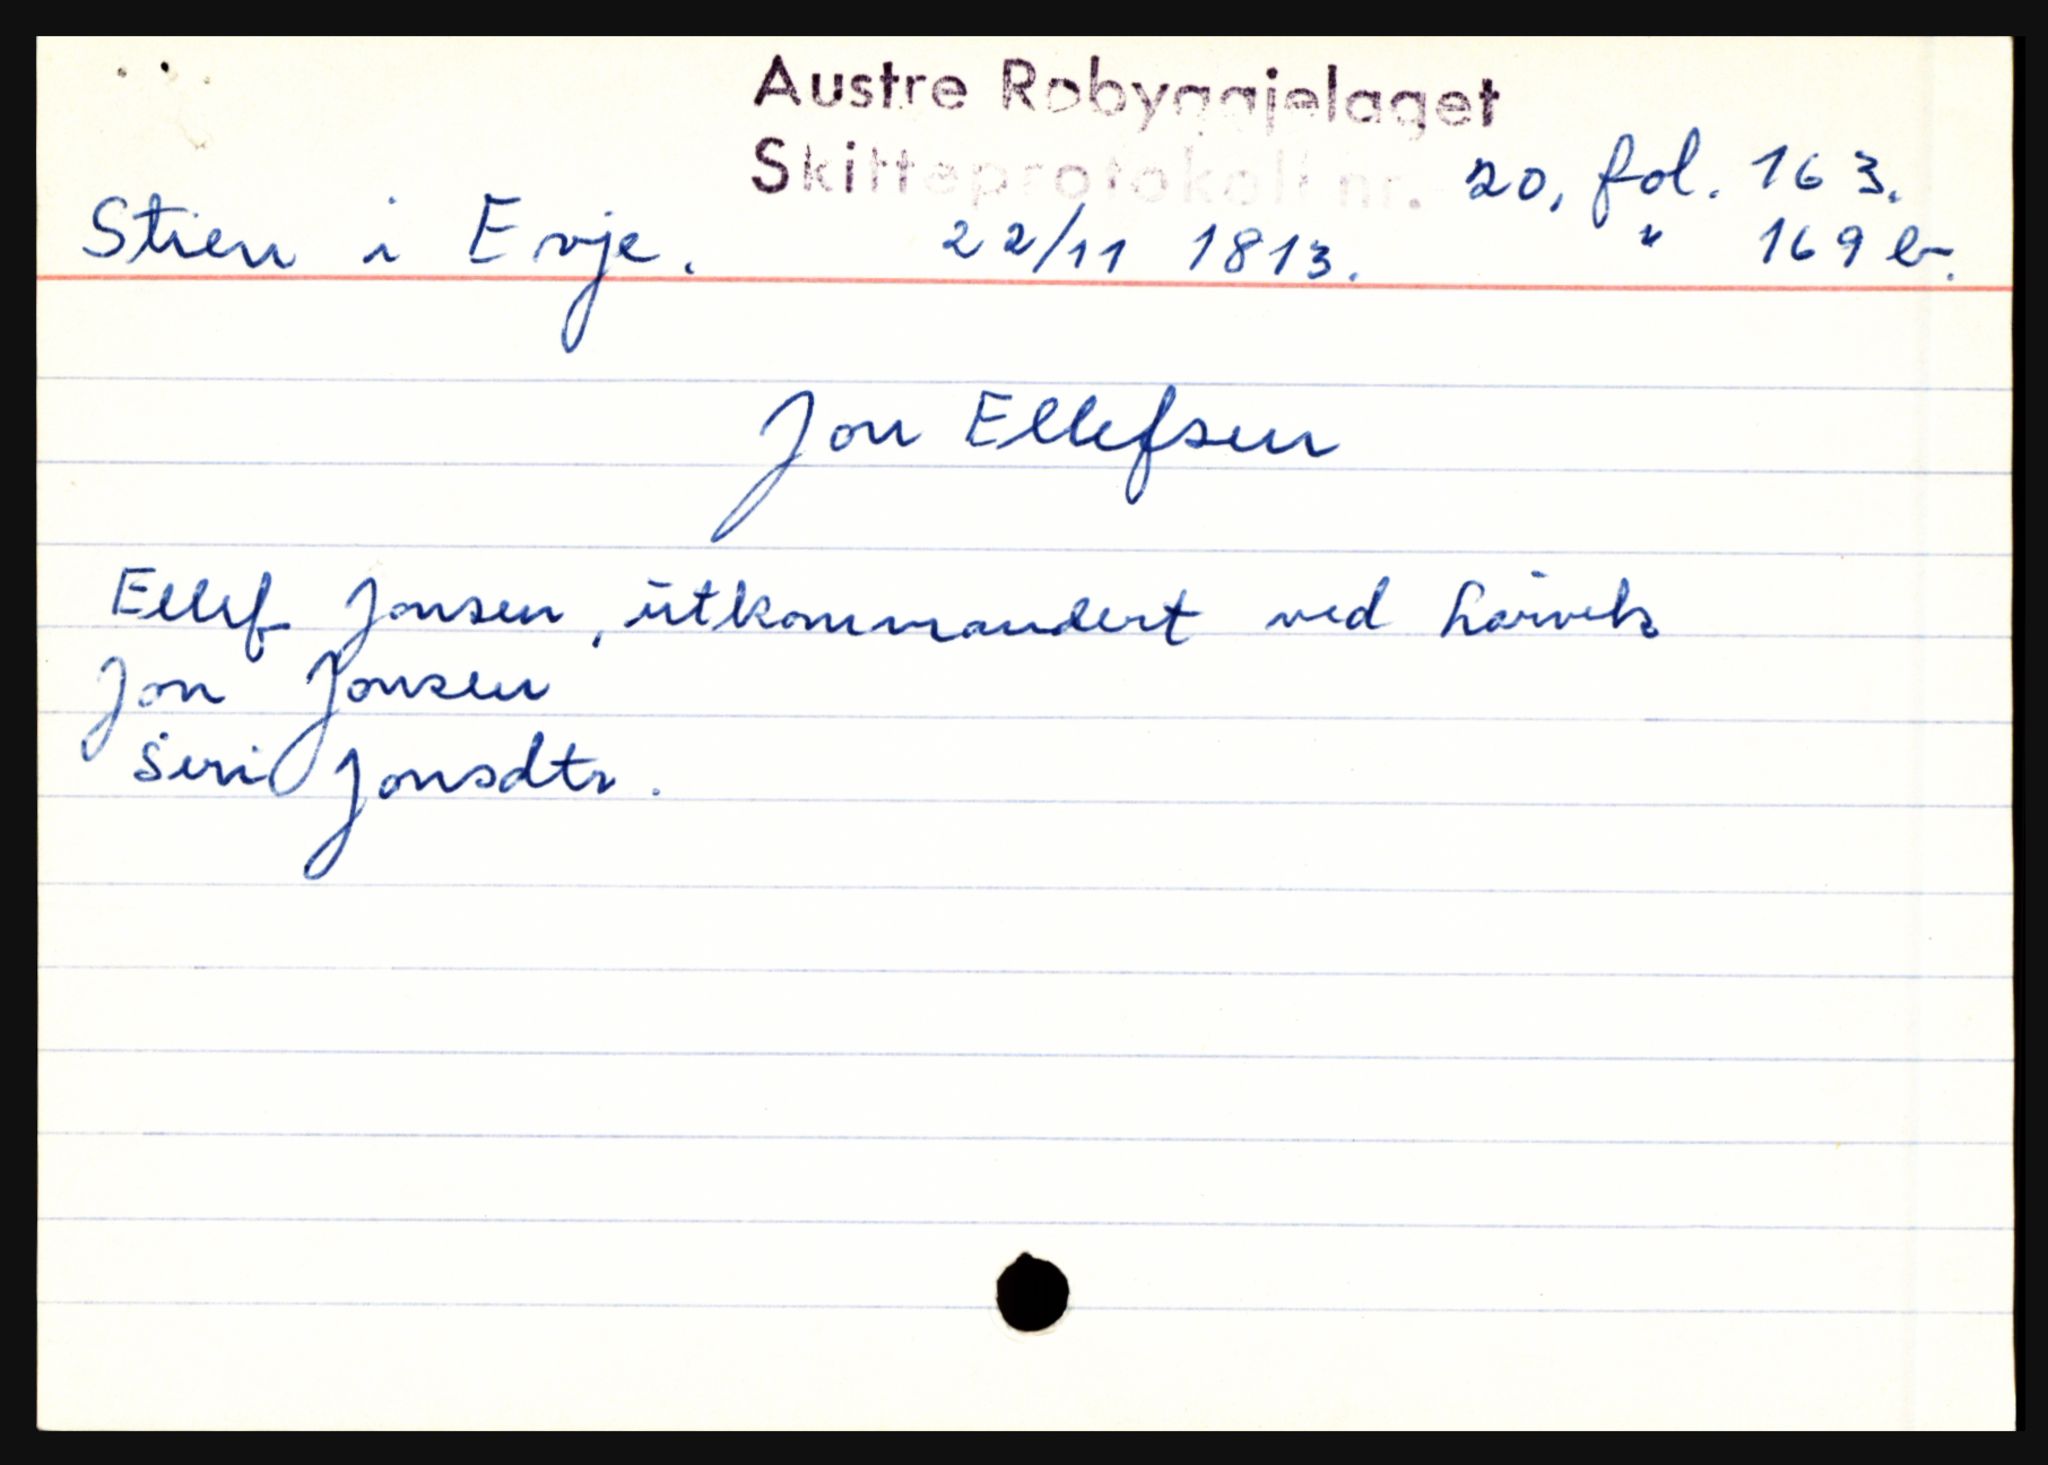 Austre Robyggjelaget
Skifteprotokoll nr. 20, fol. 163.
Stien i Evje. 22/11 1813. " 169 b.
Jon Ellefsen
Ellef Jonsen, utkommandert ved Larvik
Jon Jonsen
Siri Jonsdtr.